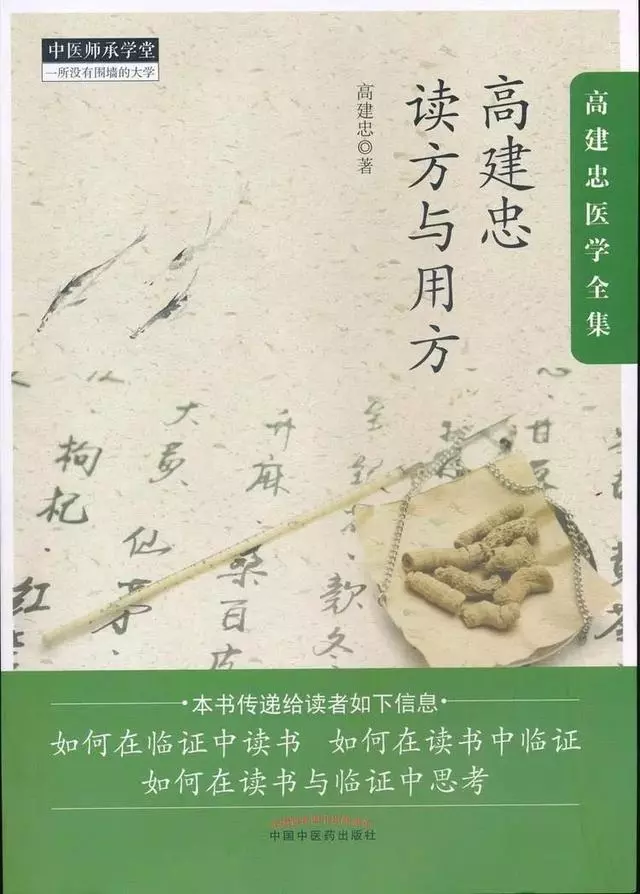 中医师承学堂
一所没有围墙的大学
高建忠医学全集
高建忠
读方与用方
高建忠◎著
甘
升麻
大黄
枸杞
仙茅
桑百皮
款冬
红
·本书传递给读者如下信息·
如何在临证中读书 如何在读书中临证
如何在读书与临证中思考
中国中医药出版社